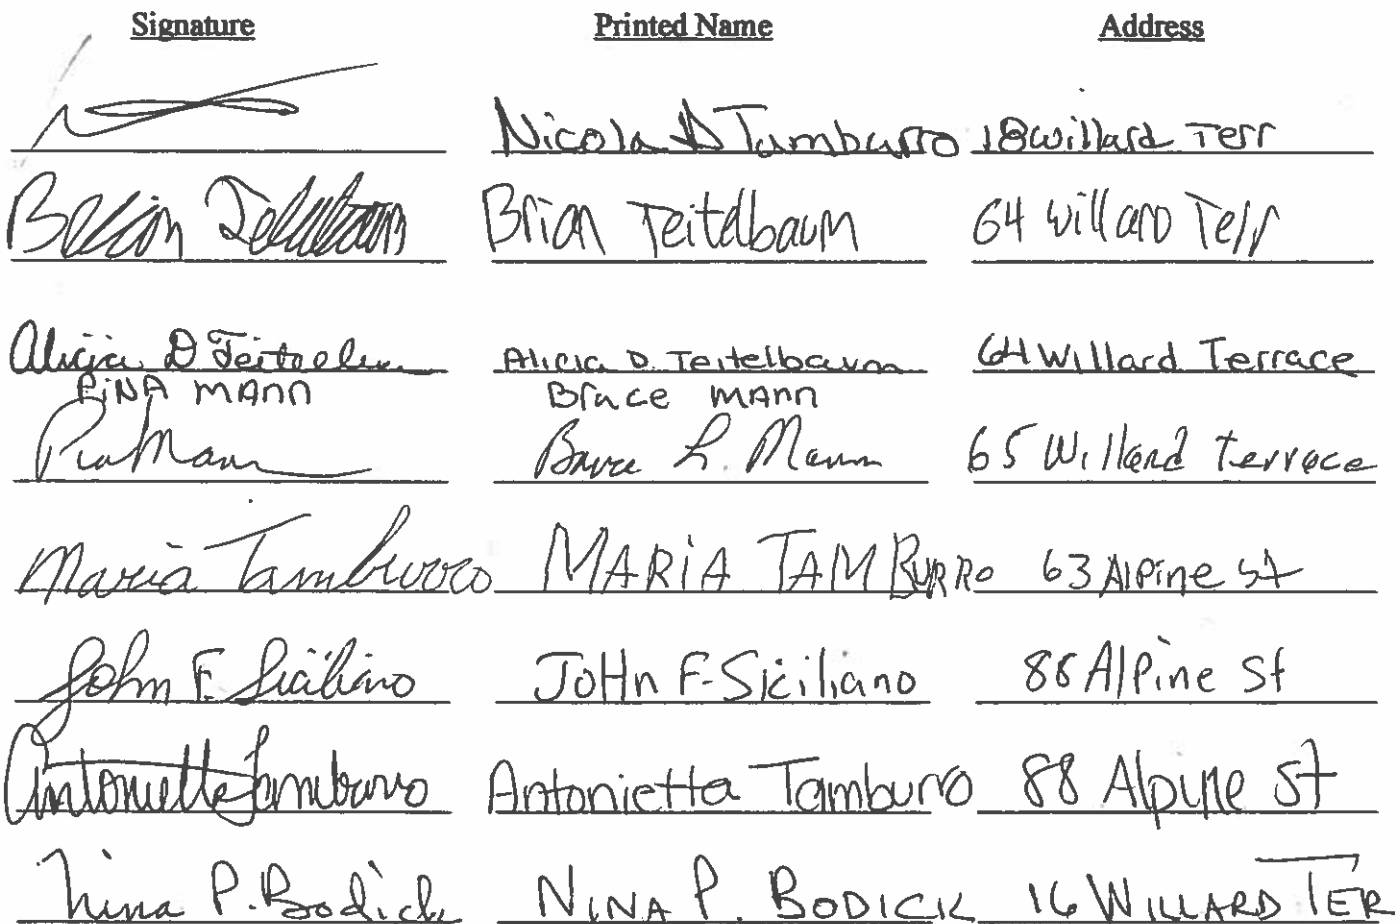 Signature Printed Name Address
Nicola D Tamburro 18 willard Terr
Brian Teitelbaum Brian Teitelbaum 64 willard Terr
Alicia D Teitelbaum Alicia D. Teitelbaum 64 Willard Terrace
PiNA MANN Bruce MANN
Pina Mann Bruce L. Mann 65 Willard terrace
Maria Tamburro MARiA TAMBURRO 63 Alpine st
John F. Siciliano JoHn F. Siciliano 88 Alpine St
Antonietta Tamburro Antonietta Tamburro 88 Alpine St
Nina P. Bodick NINA P. BODICK 16 WILLARD TER